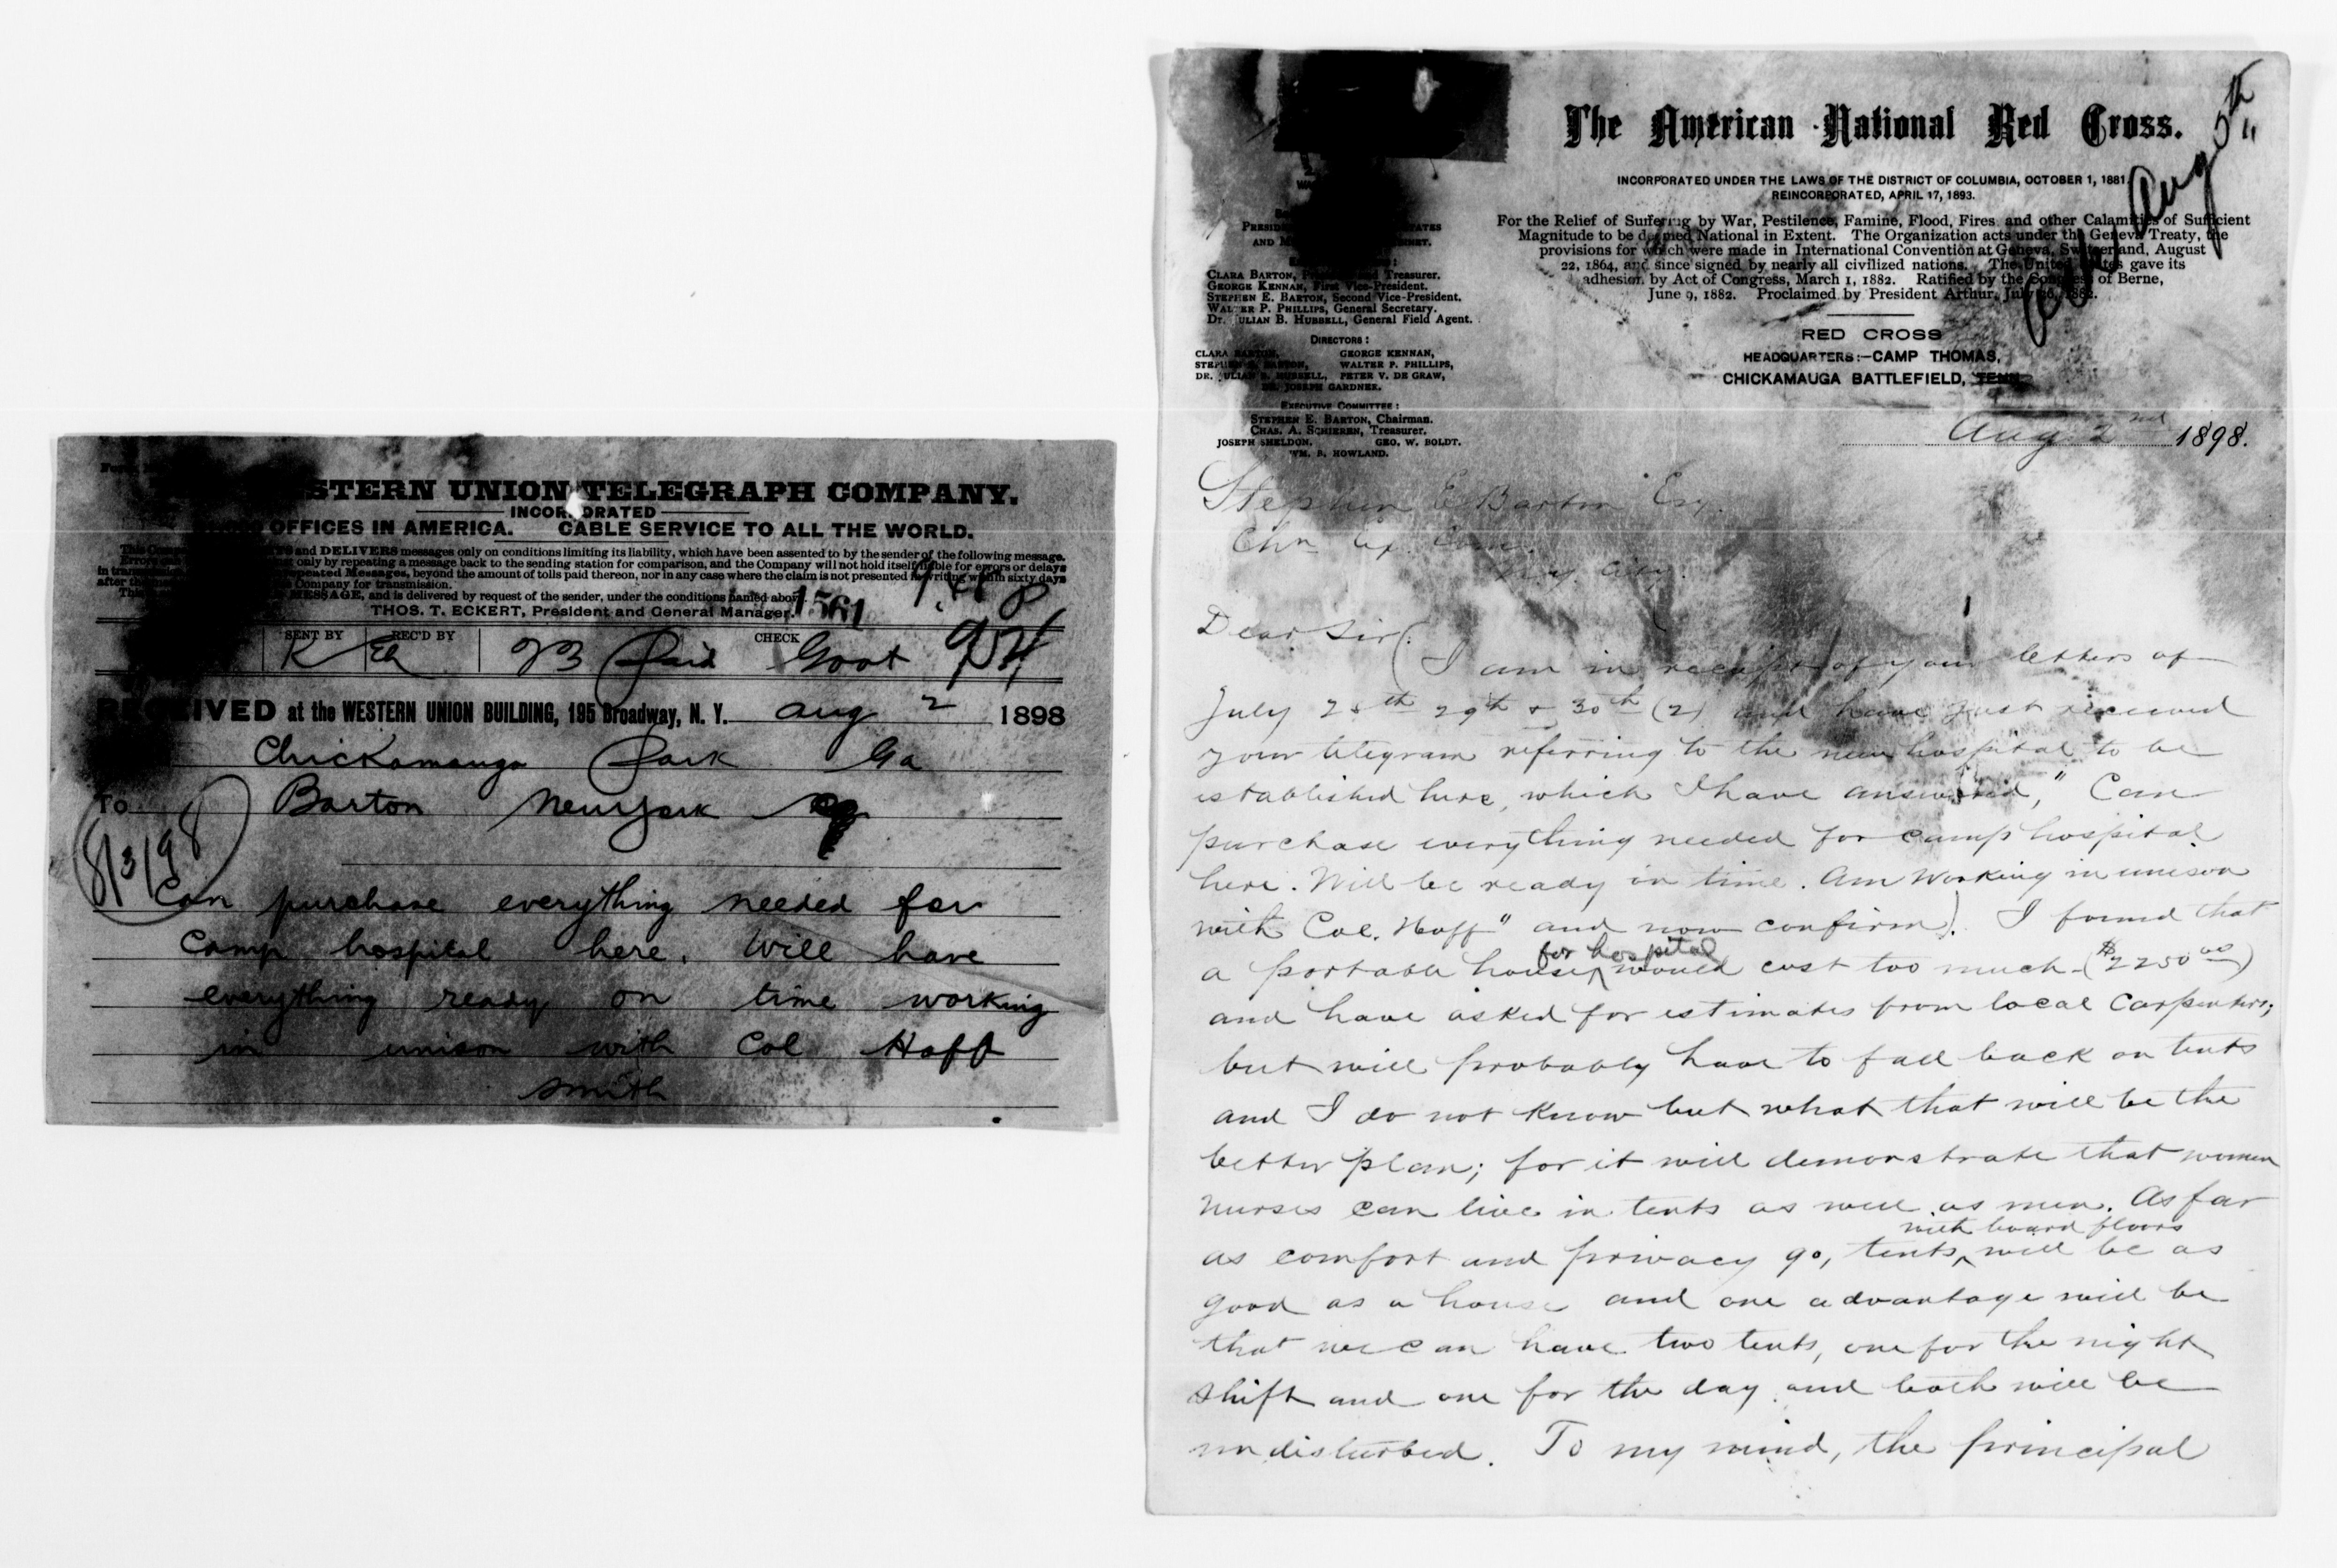 STERN UNION TELEGRAPH COMPANY.
INCORPORATED
OFFICES IN AMERICA. CABLE SERVICE TO ALL THE WORLD.
and DELIVERS messages only on conditions limiting its liability, which have been assented to by the sender of the following message.
only by repeating a message back to the sending station for comparison, and the Company will not hold itself liable for errors or delays
in repeated Messages, beyond the amount of tolls paid thereon, nor in any case where the claim is not presented in writing within sixty days
after Company for transmission.
MESSAGE, and is delivered by request of the sender, under the conditions named above.
THOS. T. ECKERT, President and General Manager.
1561
SENT BY REC'D BY CHECK
K Eh 23 Paid Govt
RECEIVED at the WESTERN UNION BUILDING, 195 Broadway, N. Y. Aug 2 1898
Chickamauga Park Ga
To Barton New York
8/3/98
Can purchase everything needed for
camp hospital here. Will have
everything ready on time working
in unison with Col Hoff
Smith
The American National Red Cross.
INCORPORATED UNDER THE LAWS OF THE DISTRICT OF COLUMBIA, OCTOBER 1, 1881.
REINCORPORATED, APRIL 17, 1893.
For the Relief of Suffering by War, Pestilence, Famine, Flood, Fires and other Calamities of Sufficient
Magnitude to be deemed National in Extent. The Organization acts under the Geneva Treaty, the
provisions for which were made in International Convention at Geneva, Switzerland, August
22, 1864, and since signed by nearly all civilized nations. The United States gave its
adhesion by Act of Congress, March 1, 1882. Ratified by the Congress of Berne,
June 9, 1882. Proclaimed by President Arthur, July 26, 1882.
Aug 5th
CLARA BARTON, President and Treasurer.
GEORGE KENNAN, First Vice-President.
STEPHEN E. BARTON, Second Vice-President.
WALTER P. PHILLIPS, General Secretary.
DR. JULIAN B. HUBBELL, General Field Agent.
DIRECTORS:
CLARA BARTON, GEORGE KENNAN,
STEPHEN E. BARTON, WALTER P. PHILLIPS,
DR. JULIAN B. HUBBELL, PETER V. DE GRAW,
DR. JOSEPH GARDNER.
EXECUTIVE COMMITTEE:
STEPHEN E. BARTON, Chairman.
CHAS. A. SCHIEREN, Treasurer.
JOSEPH SHELDON, GEO. W. BOLDT.
WM. B. HOWLAND.
RED CROSS
HEADQUARTERS:—CAMP THOMAS,
CHICKAMAUGA BATTLEFIELD, TENN.
Aug 2nd 1898.
Stephen E Barton Esq.
Chn Ex. Com.
N.Y. City.
Dear Sir:
(I am in receipt of your letters of
July 28th 29th & 30th (2) and have just received
your telegram referring to the new hospital to be
established here, which I have answered, "Can
purchase everything needed for camp hospital
here. Will be ready on time. Am working in unison
with Col. Hoff" and now confirm). I found that
a portable house for hospital would cost too much - ($2250 00)
and have asked for estimates from local carpenters;
but will probably have to fall back on tents
and I do not know but what that will be the
better plan; for it will demonstrate that women
nurses can live in tents as well as men. As far
as comfort and privacy go, tents with board floors will be as
good as a house and one advantage will be
that we can have two tents, one for the night
shift and one for the day and both will be
undisturbed. To my mind, the principal